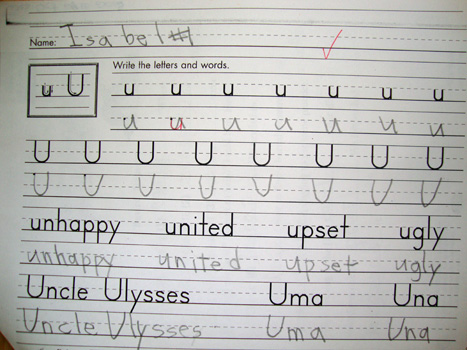 Name: Isabel #1
u U
Write the letters and words.
u u u u u u u
u u u u u u u
U U U U U U U U
U U U U U U U U
unhappy united upset ugly
unhappy united upset ugly
Uncle Ulysses Uma Una
Uncle Ulysses Uma Una